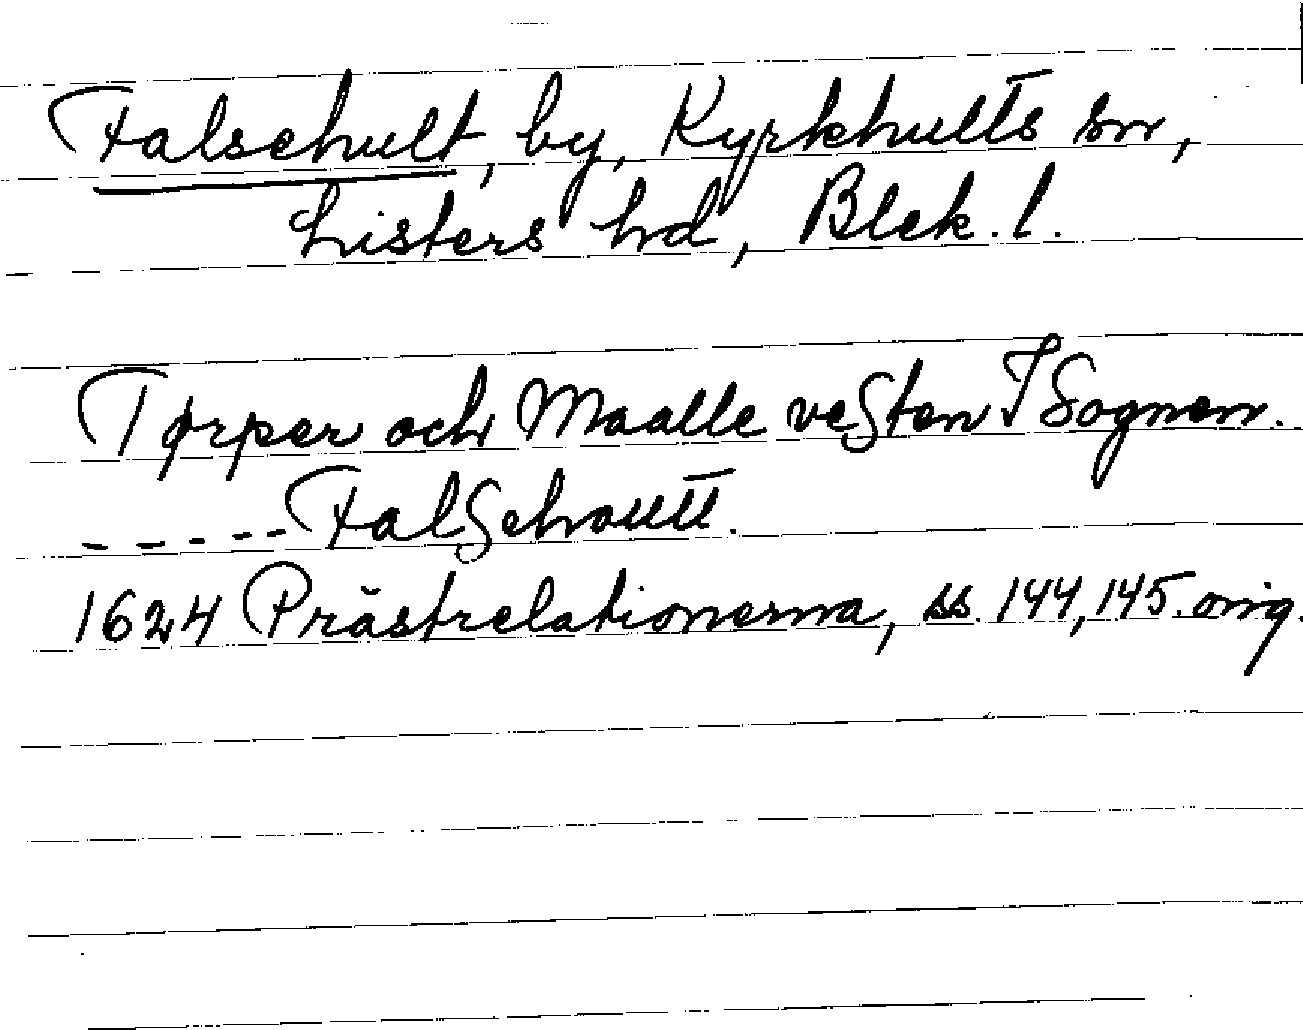 Falsehult, by, Kyrkhults sn,
Listers hd, Blek. l.
Tørper och Maalle vesten I Sognen.
- - - - - Falsehoultt.
1624 Prästrelationerna, ss. 144, 145. orig.